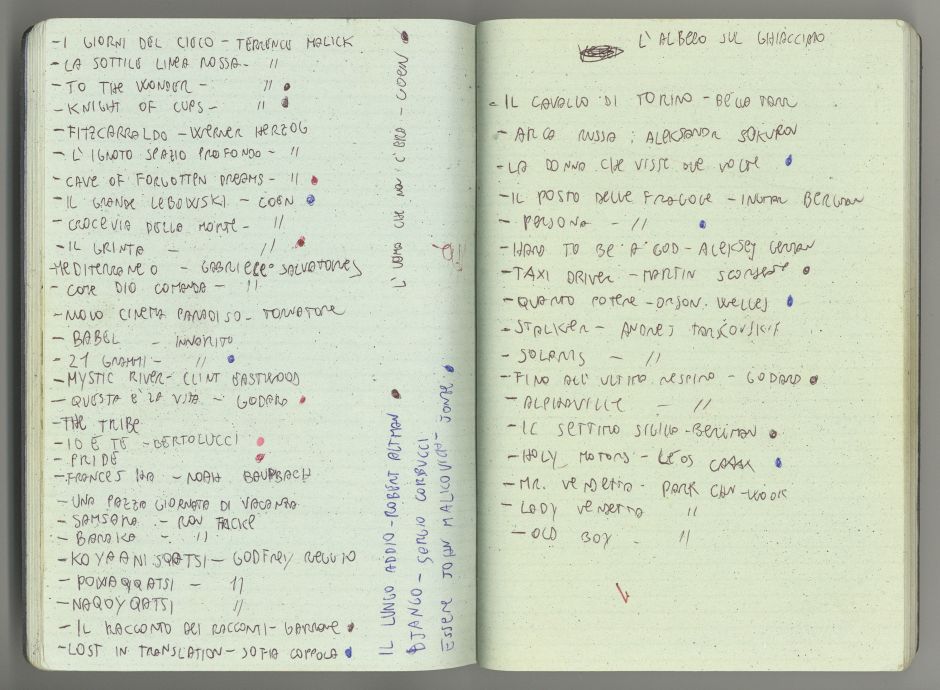 - I GIORNI DEL CIELO - TERRENCE MALICK
- LA SOTTILE LINEA ROSSA - "
- TO THE WONDER - "
- KNIGHT OF CUPS - "
- FITZCARRALDO - WERNER HERZOG
- L'IGNOTO SPAZIO PROFONDO - "
- CAVE OF FORGOTTEN DREAMS - "
- IL GRANDE LEBOWSKI - COEN
- CROCEVIA DELLA MORTE - "
- IL GRINTA - "
- MEDITERRANEO - GABRIELE SALVATORES
- COME DIO COMANDA - "
- NUOVO CINEMA PARADISO - TORNATORE
- BABEL - INNARITO
- 21 GRAMMI - "
- MYSTIC RIVER - CLINT EASTWOOD
- QUESTA È LA VITA - GODARD
- THE TRIBE
- IO E TE - BERTOLUCCI
- PRIDE
- FRANCES HA - NOAH BAUMBACH
- UNA PAZZA GIORNATA DI VACANZA
- SAMSARA - RON FRICKE
- BARAKA - "
- KOYAANISQATSI - GODFREY REGGIO
- POWAQQATSI - "
- NAQOYQATSI "
- IL RACCONTO DEI RACCONTI - GARRONE
- LOST IN TRANSLATION - SOFIA COPPOLA
L'UOMO CHE NON C'ERA - COEN
IL LUNGO ADDIO - ROBERT ALTMAN
DJANGO - SERGIO CORBUCCI
ESSERE JOHN MALKOVICH - JONZE
L'ALBERO SUL GHIACCIAIO
- IL CAVALLO DI TORINO - BELA TARR
- ARCA RUSSA : ALEKSANDR SOKUROV
- LA DONNA CHE VISSE DUE VOLTE
- IL POSTO DELLE FRAGOLE - INGMAR BERGMAN
- PERSONA - "
- HARD TO BE A GOD - ALEKSEJ GERMAN
- TAXI DRIVER - MARTIN SCORSESE
- QUARTO POTERE - ORSON WELLES
- STALKER - ANDREJ TARKOVSKIJ
- SOLARIS - "
- FINO ALL'ULTIMO RESPIRO - GODARD
- ALPHAVILLE - "
- IL SETTIMO SIGILLO - BERGMAN
- HOLY MOTORS - LEOS CARAX
- MR. VENDETTA - PARK CHAN-WOOK
- LADY VENDETTA "
- OLD BOY - "